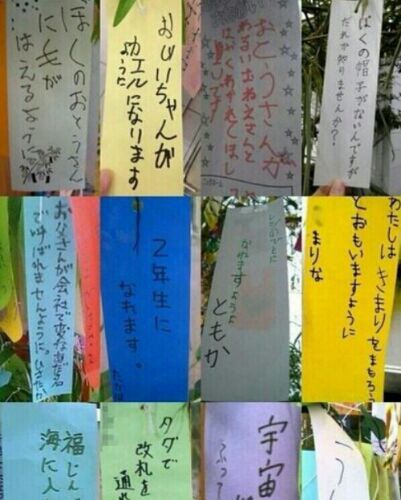 ぼくのおとうさん
に毛が
はえるように
おじいちゃんが
カエルになります
ように
おとうさんが
わるいおねえさんと
はやくわかれてほし
いです
ぼくの帽子がないんですが
だれか知りませんか?
お父さんが会社で変な
で呼ばれませんように。
2年生に
なれます。
なれますように
ともか
わたしはきまりをまもろう
とおもいますように
まりな
福じん
海に人
タダで
改札を
通れ
宇宙
ふって